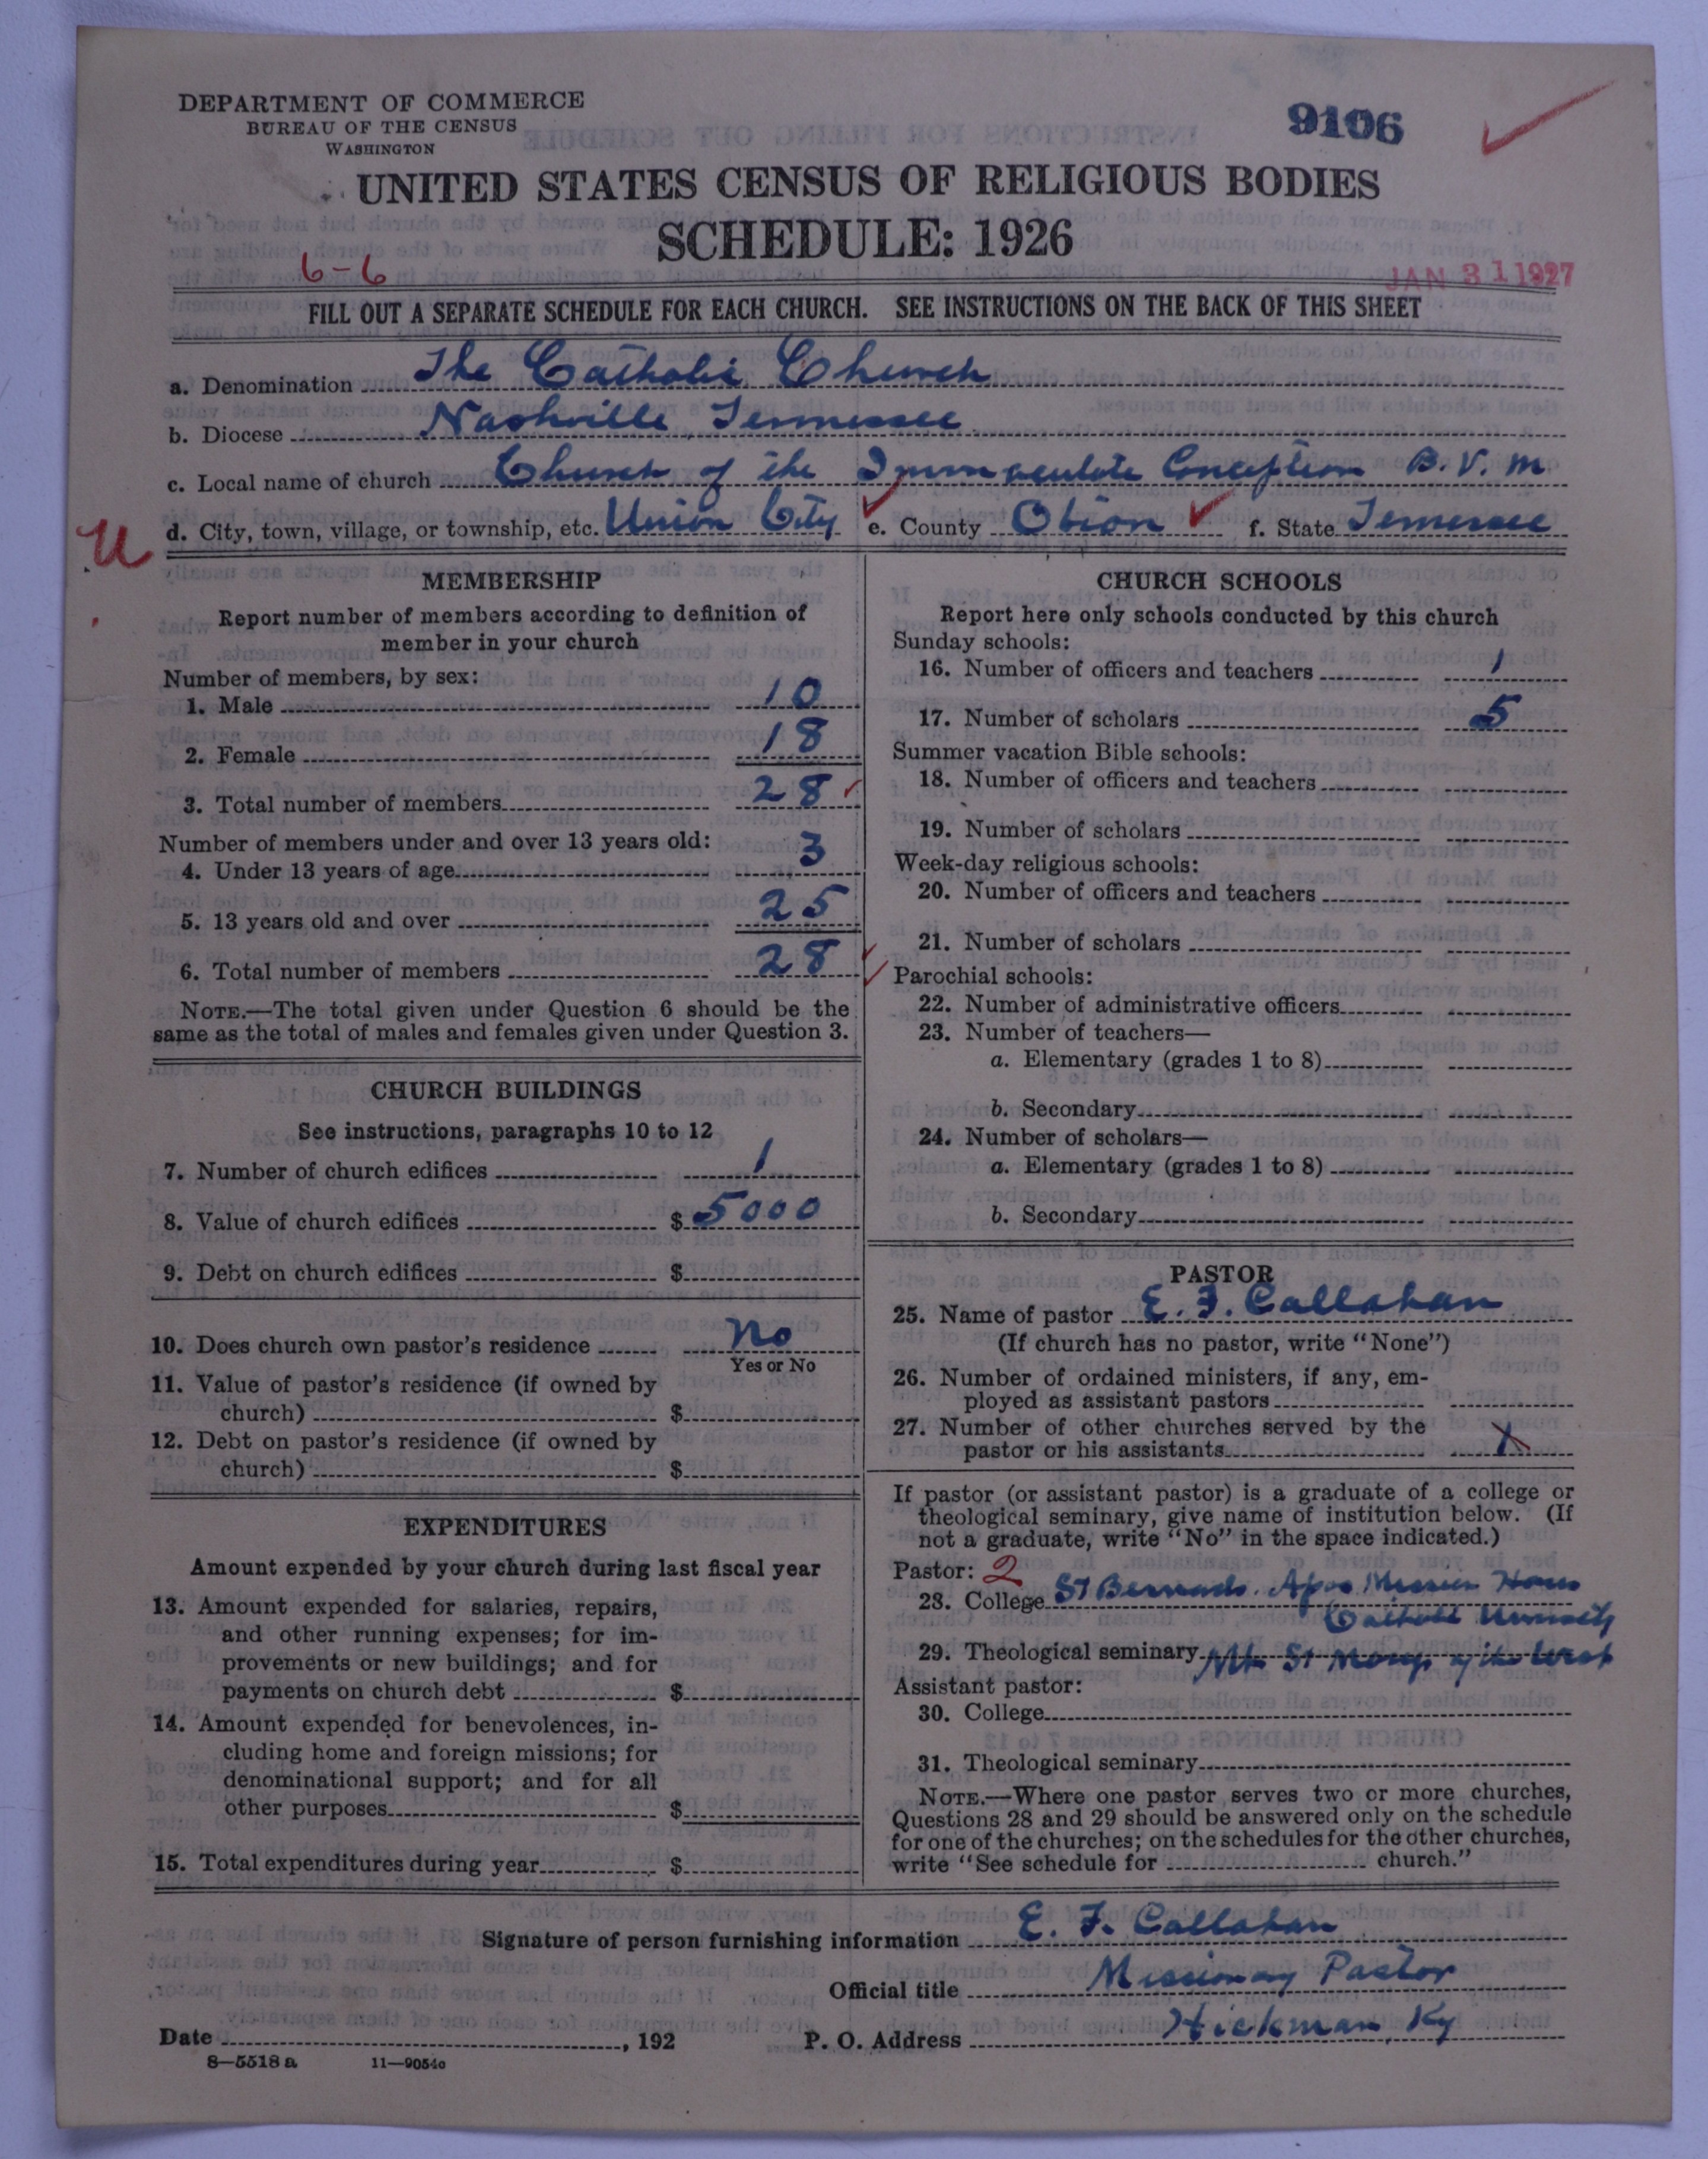 DEPARTMENT OF COMMERCE
BUREAU OF THE CENSUS
WASHINGTON
9106
UNITED STATES CENSUS OF RELIGIOUS BODIES
SCHEDULE: 1926
6-6
JAN 31 1927
FILL OUT A SEPARATE SCHEDULE FOR EACH CHURCH. SEE INSTRUCTIONS ON THE BACK OF THIS SHEET
a. Denomination The Catholic Church
b. Diocese Nashville, Tennessee
c. Local name of church Church of the Immaculate Conception B.V.M
U d. City, town, village, or township, etc. Union City e. County Obion f. State Tennessee
MEMBERSHIP
Report number of members according to definition of
member in your church
Number of members, by sex:
1. Male 10
2. Female 18
3. Total number of members 28
Number of members under and over 13 years old:
4. Under 13 years of age 3
5. 13 years old and over 25
6. Total number of members 28
NOTE.—The total given under Question 6 should be the
same as the total of males and females given under Question 3.
CHURCH BUILDINGS
See instructions, paragraphs 10 to 12
7. Number of church edifices 1
8. Value of church edifices $ 5000
9. Debt on church edifices $
10. Does church own pastor's residence No
Yes or No
11. Value of pastor's residence (if owned by
church) $
12. Debt on pastor's residence (if owned by
church) $
EXPENDITURES
Amount expended by your church during last fiscal year
13. Amount expended for salaries, repairs,
and other running expenses; for im-
provements or new buildings; and for
payments on church debt $
14. Amount expended for benevolences, in-
cluding home and foreign missions; for
denominational support; and for all
other purposes $
15. Total expenditures during year $
CHURCH SCHOOLS
Report here only schools conducted by this church
Sunday schools:
16. Number of officers and teachers 1
17. Number of scholars 5
Summer vacation Bible schools:
18. Number of officers and teachers
19. Number of scholars
Week-day religious schools:
20. Number of officers and teachers
21. Number of scholars
Parochial schools:
22. Number of administrative officers
23. Number of teachers—
a. Elementary (grades 1 to 8)
b. Secondary
24. Number of scholars—
a. Elementary (grades 1 to 8)
b. Secondary
PASTOR
25. Name of pastor E. F. Callahan
(If church has no pastor, write "None")
26. Number of ordained ministers, if any, em-
ployed as assistant pastors
27. Number of other churches served by the
pastor or his assistants X
If pastor (or assistant pastor) is a graduate of a college or
theological seminary, give name of institution below. (If
not a graduate, write "No" in the space indicated.)
Pastor: 2
28. College St Bernards. Apos Mission House
Catholic University
29. Theological seminary Mt St Marys of the West
Assistant pastor:
30. College
31. Theological seminary
NOTE.—Where one pastor serves two or more churches,
Questions 28 and 29 should be answered only on the schedule
for one of the churches; on the schedules for the other churches,
write "See schedule for church."
Signature of person furnishing information E. F. Callahan
Official title Missionary Pastor
Date , 192 P. O. Address Hickman, Ky
8—5518 a 11—9054o